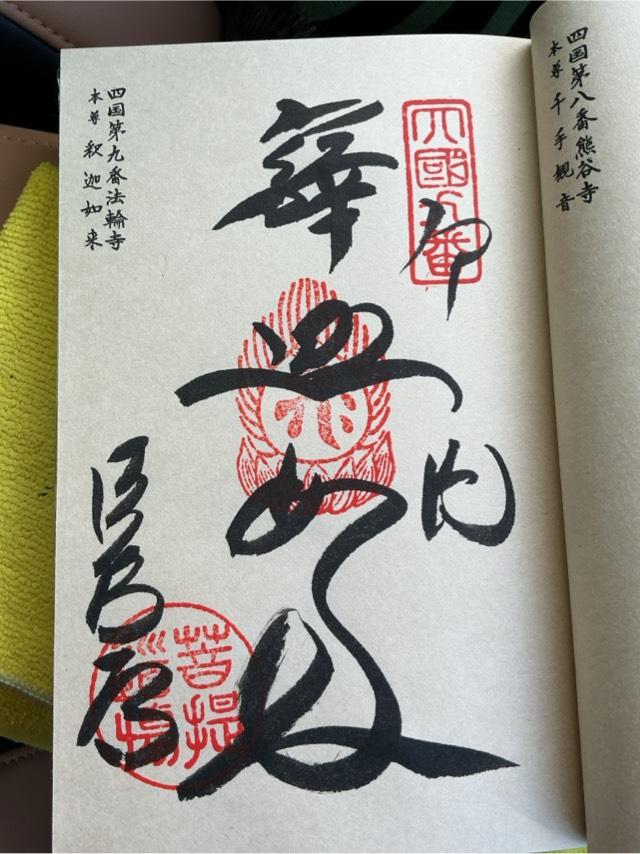 四国第八番熊谷寺
本尊 千手観音
四國九番
奉納
釋迦如来
菩提
道場
法輪寺
四国第九番法輪寺
本尊 釈迦如来